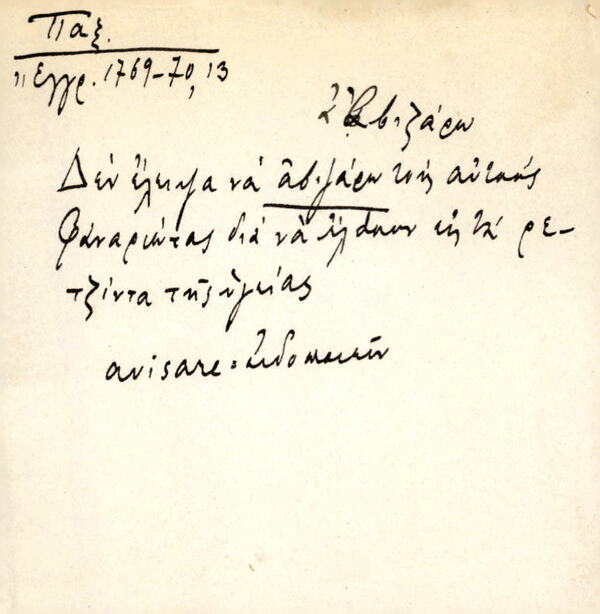 Παξ.
"Εγγρ. 1769-70, 13
ἀβιζάρω
Δὲν ἔλειψα νὰ ἀβιζάρω τοὺς αὐτοὺς
Φαναριώτας διὰ νὰ ἔλθουν εἰς τὰ ρε-
τζίντα τῆς ὑγείας
avisare = εἰδοποιεῖν